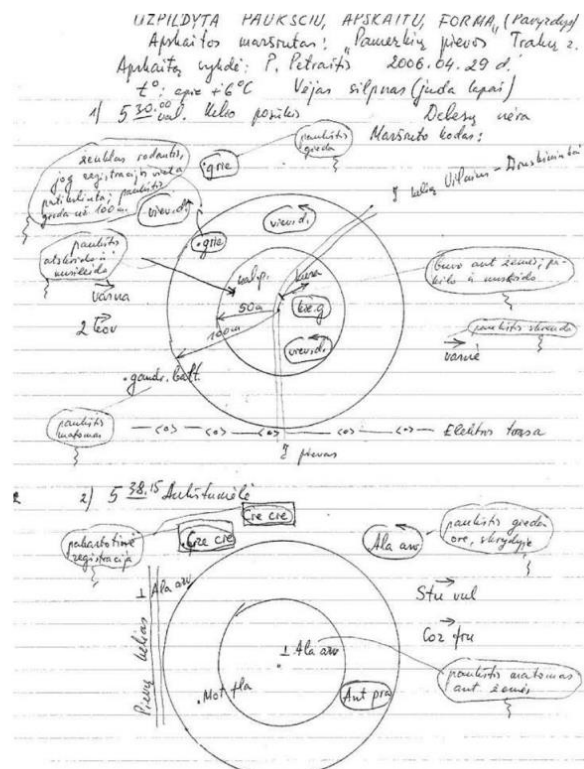 UŽPILDYTA PAUKŠČIŲ APSKAITŲ FORMA (Pavyzdys)
Apskaitos maršrutas: „Pamerkių pievos Trakų r.
Apskaitą vykdė: P. Petraitis 2006.04.29 d.
t°: apie +6°C Vėjas silpnas (juda lapai)
1) 5 30.00 val. Kelio posūkis Debesų nėra
Maršruto kodas:
paukštis gieda
ženklas rodantis,
jog registracijos vieta
patikslinta; paukštis
gieda už 100m
grie
vievsd.
į kelią Vilnius - Druskininkai
vievsd.
grie
paukštis
atskrido ir
nusileido
varna
2 kov
kuosa
50m
100m
kie.g
vievsd.
buvo ant žemės; pa-
kilo ir nuskrido
paukštis skrenda
varnė
gandr. balt.
paukštis
matomas
Elektros trasa
į pievas
2) 5 38.15 Aukštumėlė
Cre cre
Cre cre
pakartotinė
registracija
Ala arv
paukštis gieda
ore, skrydyje
⊥ Ala arv
Pievų kelias
Stu vul
Cor fru
⊥ Ala arv
Mot fla
Ant pra
paukštis matomas
ant žemės